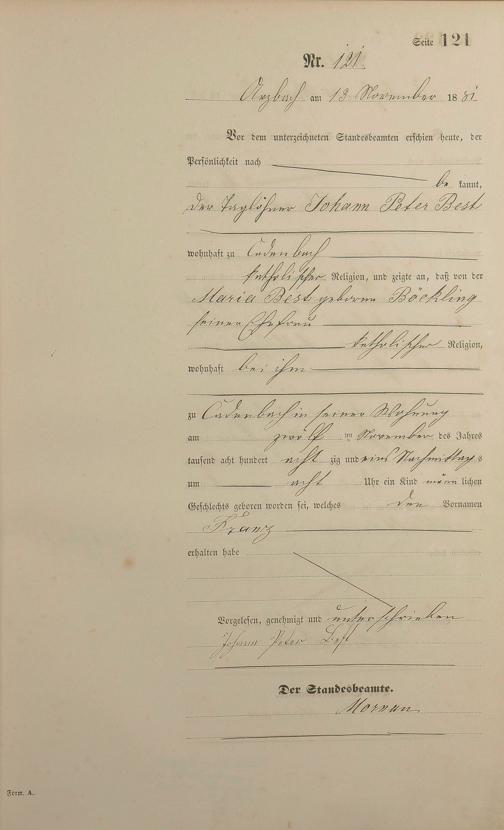 Seite 121
Nr. 121.
Arzbach am 13 November 1881
Vor dem unterzeichneten Standesbeamten erschien heute, der
Persönlichkeit nach
be kannt,
der Taglöhner Johann Peter Best
wohnhaft zu Cadenbach
katholischer Religion, und zeigte an, daß von der
Maria Best geborene Böckling
seiner Ehefrau
katholischer Religion,
wohnhaft bei ihm
zu Cadenbach in seiner Wohnung
am zwölf ten November des Jahres
tausend acht hundert acht zig und eins Nachmittags
um acht Uhr ein Kind männ lichen
Geschlechts geboren worden sei, welches den Vornamen
Franz
erhalten habe
Vorgelesen, genehmigt und unterschrieben
Johann Peter Best
Der Standesbeamte.
Form. A.